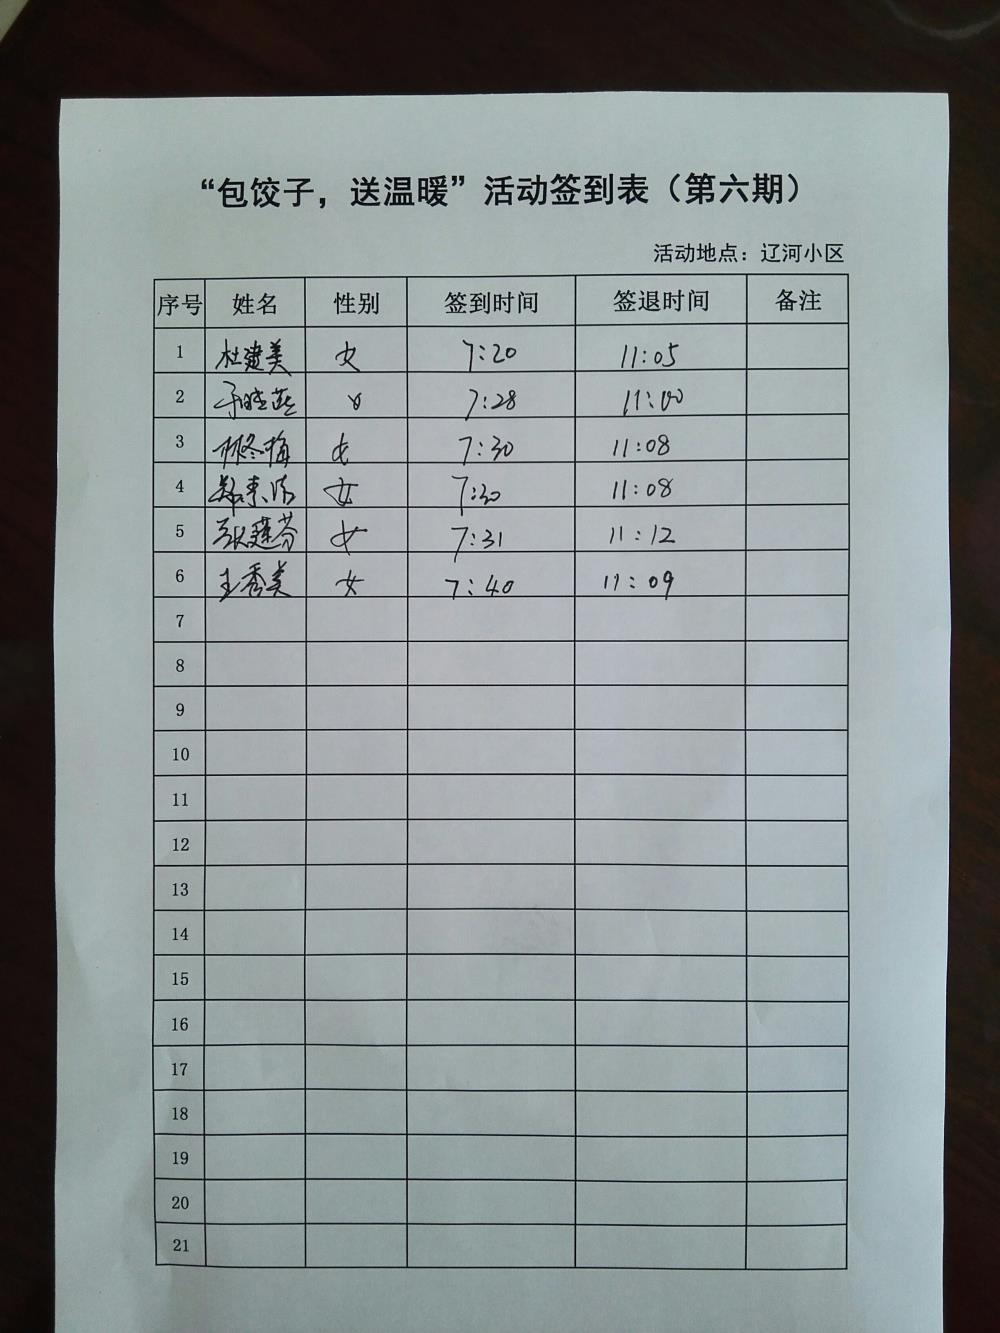 “包饺子，送温暖”活动签到表（第六期）
活动地点：辽河小区
序号 姓名 性别 签到时间 签退时间 备注
1 杜建美 女 7:20 11:05
2 于晓燕 女 7:28 11:00
3 林冬梅 女 7:30 11:08
4 女 7:30 11:08
5 张莲芬 女 7:31 11:12
6 王秀美 女 7:40 11:09
7
8
9
10
11
12
13
14
15
16
17
18
19
20
21